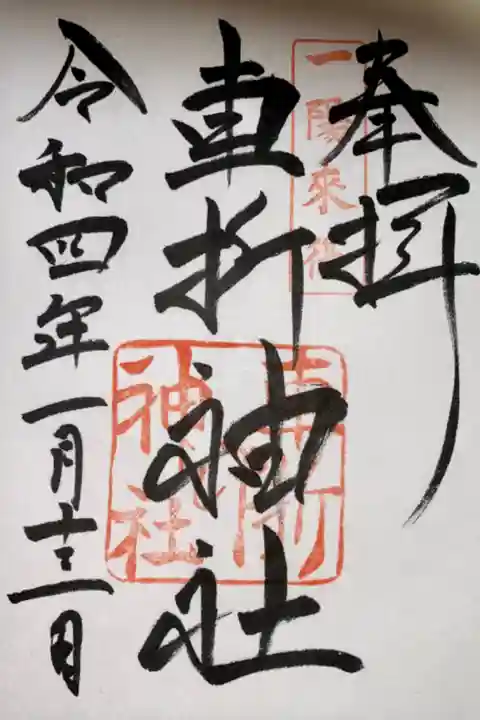 奉拝
一陽來復
車折神社
車折神社
令和四年一月十三日